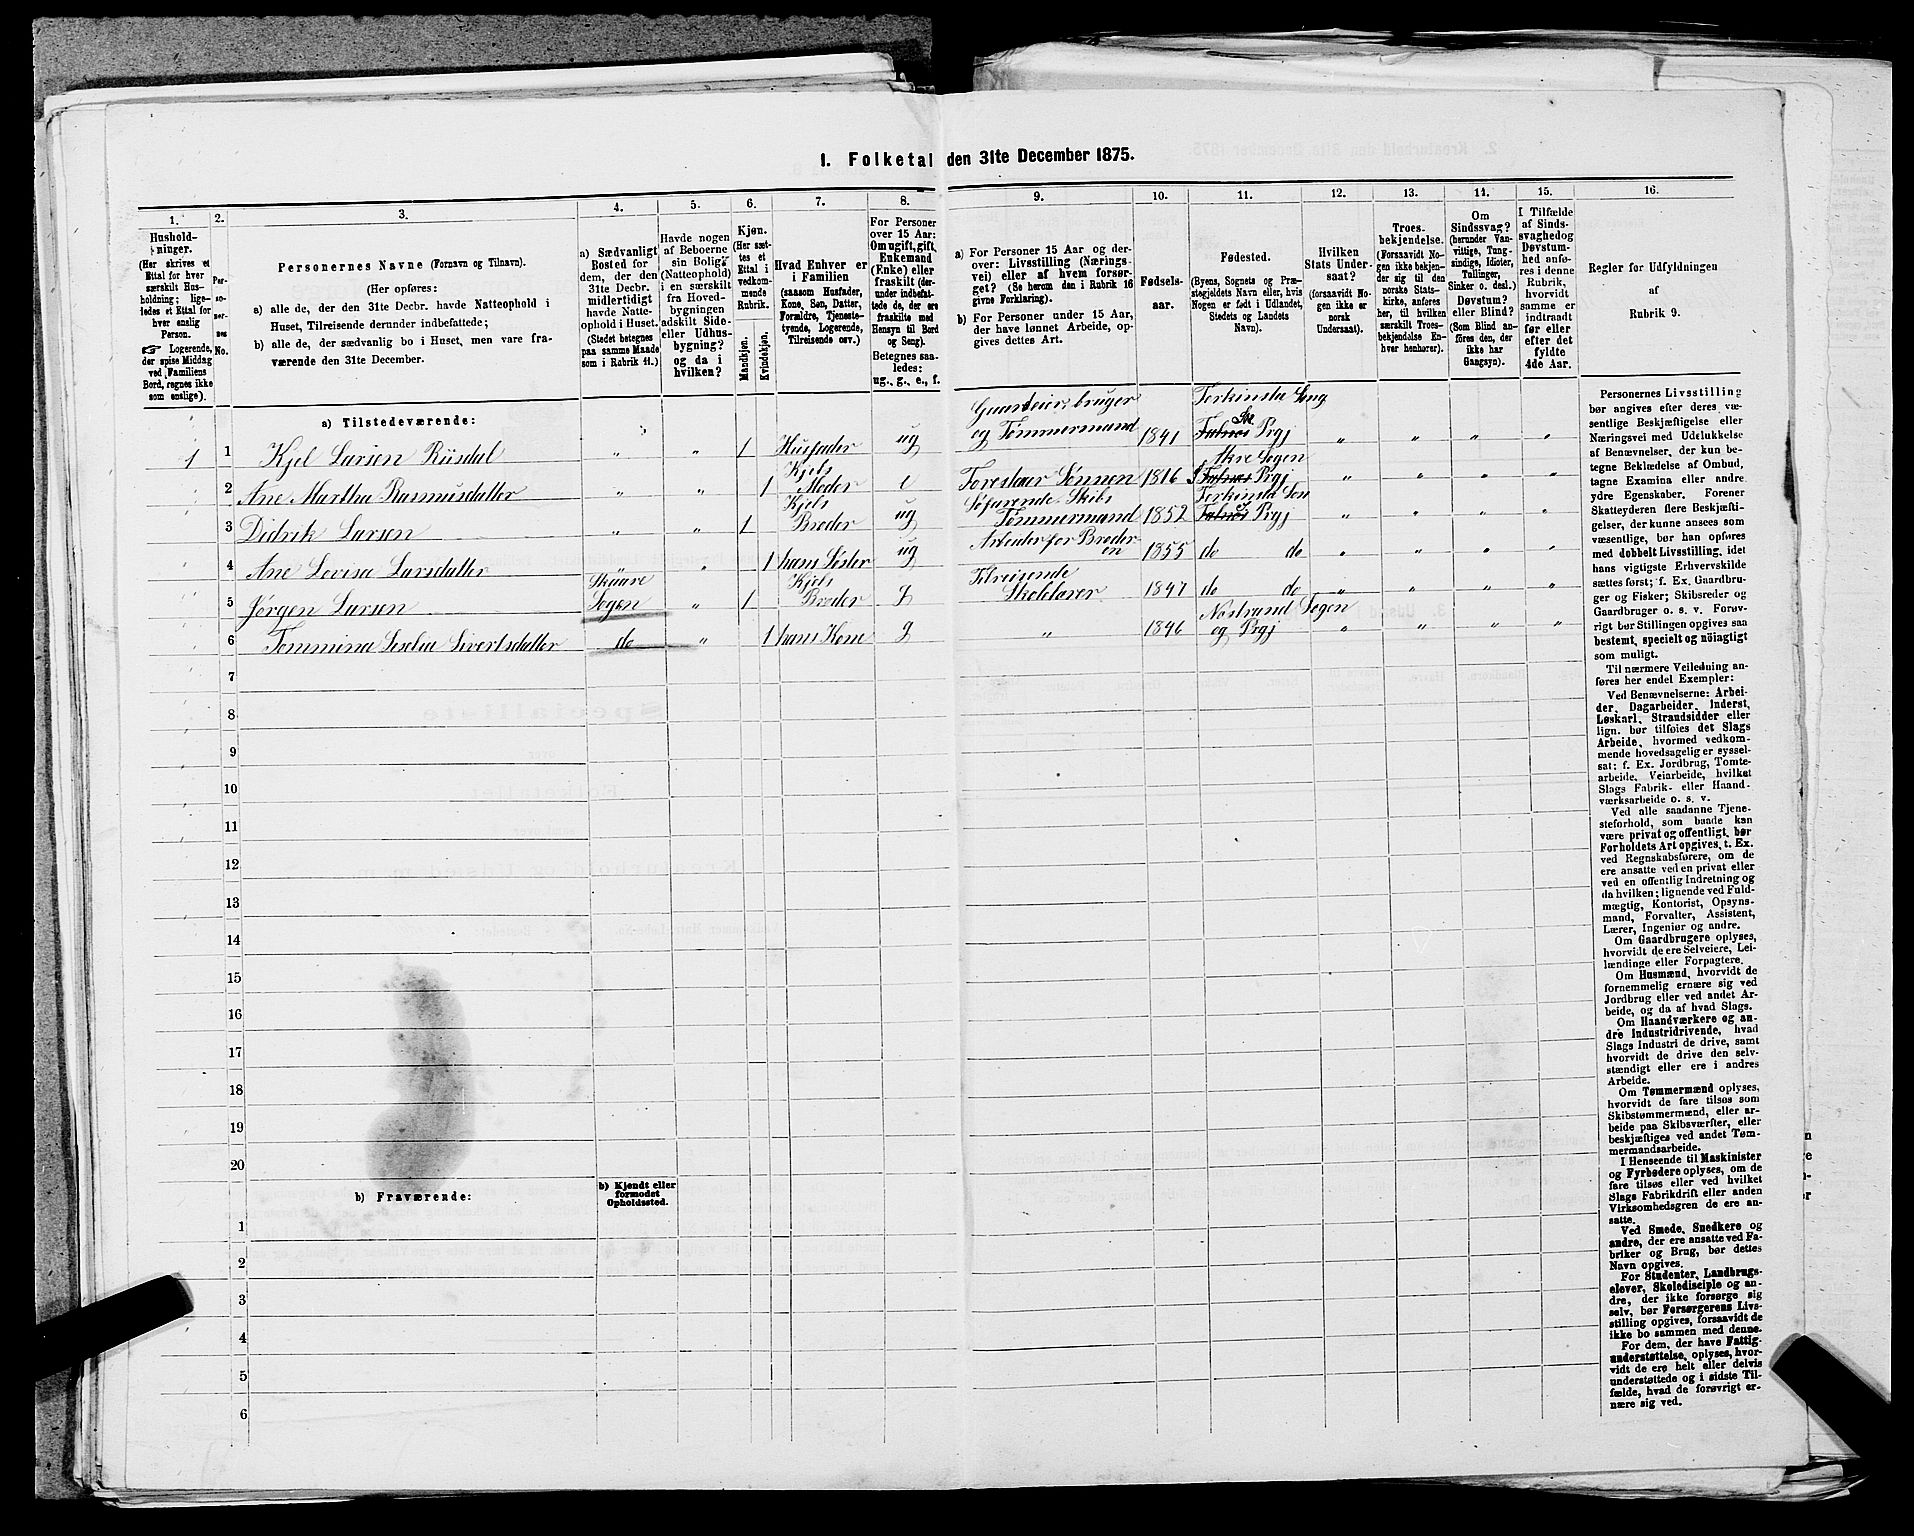 1. Folketal den 31te December 1875.
1.
2.
3.
4.
5.
6.
7.
8.
9.
10.
11.
12.
13.
14.
15.
16.
Hushold-
ninger.
(Her skrives et
Ettal for hver
særskilt Hus-
holdning; lige-
ledes et Ettal for
hver enslig
Person.
☞ Logerende,
der spise Middag
ved Familiens
Bord, regnes ikke
som enslige).
Per-
so-
ner-
nes
No.
Personernes Navne (Fornavn og Tilnavn).
(Her opføres:
a) alle de, der den 31te Decbr. havde Natteophold i
Huset, Tilreisende derunder indbefattede;
b) alle de, der sædvanlig bo i Huset, men vare fra-
værende den 31te December.
a) Sædvanligt
Bosted for
dem, der den
31te Decbr.
midlertidigt
havde Natte-
ophold i Huset.
(Stedet betegnes
paa samme Maade
som i Rubrik 11.)
Havde nogen
af Beboerne
sin Bolig
(Natteophold)
i en særskilt
fra Hoved-
bygningen
adskilt Side-
eller Udhus-
bygning?
og da i
hvilken?
Kjøn.
(Her sæt-
tes et
Ettal i
vedkom-
mende
Rubrik.
Mandkjøn.
Kvindekjøn.
Hvad Enhver er
i Familien
(saasom Husfader,
Kone, Søn, Datter,
Forældre, Tjeneste-
tyende, Logerende,
Tilreisende osv.)
For Personer
over 15 Aar:
Om ugift, gift,
Enkemand
(Enke) eller
fraskilt (der-
under indbefat-
tede de, der ere
fraskilte med
Hensyn til Bord
og Seng).
Betegnes saa-
ledes:
ug., g., e., f.
a) For Personer 15 Aar og der-
over: Livsstilling (Nærings-
vei) eller af hvem forsør-
get? (Se herom den i Rubrik 16
givne Forklaring).
b) For Personer under 15 Aar,
der have lønnet Arbeide, op-
gives dettes Art.
Fødsels-
aar.
Fødested.
(Byens, Sognets og Præ-
stegjeldets Navn eller, hvis
Nogen er født i Udlandet,
Stedets og Landets
Navn).
Hvilken
Stats Under-
saat?
(forsaavidt No-
gen ikke er
norsk
Undersaat).
Troes-
bekjendelse.
(Forsaavidt No-
gen ikke bekjen-
der sig til den
norske Stats-
kirke, anføres
her, til hvilken
særskilt Troes-
bekjendelse En-
hver henhører).
Om
Sindssvag?
(herunder Van-
vittige, Tung-
sindige, Idioter,
Tullinger,
Sinker o. desl.)
Døvstum?
eller Blind?
(Som Blind an-
føres den, der
ikke har
Gangsyn).
I Tilfælde
af Sinds-
svaghed og
Døvstum-
hed anfø-
res i denne
Rubrik,
hvorvidt
samme er
indtraadt
før eller
efter det
fyldte
4de Aar.
Regler for Udfyldningen
af
Rubrik 9.
a) Tilstedeværende:
1 1 Kjel Larsen Riisdal " " 1 Husfader ug Gaardeier, bruger og Tømmermand 1841 Prgj " " " "
2 Ane Martha Rasmusdatter " " 1 Kjels Moder e Foreslaar Sønnen 1816 Skre Sogn Prgj " " " "
3 Didrik Larsen " " 1 Kjels Broder ug Søfarende. Skibs Tømmermand 1852 Prgj " " " "
4 Ane Lovisa Larsdatter " " 1 hans Søster ug Arbeider for Broderen 1855 do do " " " "
5 Jørgen Larsen Skaare Sogen " 1 Kjels Broder g Tilreisende Skolelærer 1847 do do " " " "
6 Tommina Sivertsdatter do " 1 hans Kone g " 1846 Nostrand Sogen og Prgj " " " "
7
8
9
10
11
12
13
14
15
16
17
18
19
20
b) Fraværende:
b) Kjendt eller
formodet
Opholdssted.
1
2
3
4
5
6
Personernes Livsstilling
bør angives efter deres væ-
sentlige Beskjæftigelse eller
Næringsvei med Udelukkelse
af Benævnelser, der kun be-
tegne Beklædelse af Ombud,
tagne Examina eller andre
ydre Egenskaber. Forener
Skatteyderen flere Beskjæfti-
gelser, der kunne ansees som
væsentlige, bør han opføres
med dobbelt Livsstilling, idet
hans vigtigste Erhvervskilde
sættes først; f. Ex. Gaardbru-
ger og Fisker; Skibsreder og
Gaardbruger o. s. v. Forøv-
rigt bør Stillingen opgives saa
bestemt, specielt og nöiagtigt
som muligt.
Til nærmere Veiledning an-
føres her endel Exempler:
Ved Benævnelserne: Arbei-
der, Dagarbeider, Inderst,
Løskarl, Strandsidder eller
lign. bør tilføies det Slags
Arbeide, hvormed vedkom-
mende hovedsagelig er syssel-
sat: f. Ex. Jordbrug, Tomte-
arbeide, Veiarbeide, hvilket
Slags Fabrik- eller Haand-
værksarbeide o. s. v.
Ved alle saadanne Tjene-
steforhold, som baade kan
være privat og offentligt, bør
Forholdets Art opgives, t. Ex.
ved Regnskabsførere, om de
ere ansatte ved en privat eller
ved en offentlig Indretning og
da hvilken; lignende ved Fuld-
mægtig, Kontorist, Opsyns-
mand, Forvalter, Assistent,
Lærer, Ingeniør og andre.
Om Gaardbrugere oplyses,
hvorvidt de ere Selveiere, Lei-
lændinge eller Forpagtere.
Om Husmænd, hvorvidt de
fornemmelig ernære sig ved
Jordbrug eller ved andet Ar-
beide, og da af hvad Slags.
Om Haandværkere og an-
dre Industridrivende, hvad
Slags Industri de drive, samt
hvorvidt de drive den selv-
stændigt eller ere i andres
Arbeide.
Om Tømmermænd oplyses,
hvorvidt de fare tilsøs som
Skibstømmermænd, eller ar-
beide paa Skibsværfter, eller
beskjæftiges ved andet Tøm-
mermandsarbeide.
I Henseende til Maskinister
og Fyrbødere oplyses, om de
fare tilsøs eller ved hvilket
Slags Fabrikdrift eller anden
Virksomhedsgren de ere an-
satte.
Ved Smede, Snedkere og
andre, der ere ansatte ved Fa-
briker og Brug, bør dettes
Navn opgives.
For Studenter, Landbrugs-
elever, Skoledisciple og an-
dre, der ikke forsørge sig
selv, bør Forsørgerens Livs-
stilling opgives, forsaavidt de
ikke bo sammen med denne.
For dem, der have Fattig-
understøttelse, oplyses, hvor-
vidt de ere helt eller delvis
understøttede og i sidste Til-
fælde, hvad de forøvrigt er-
nære sig ved.